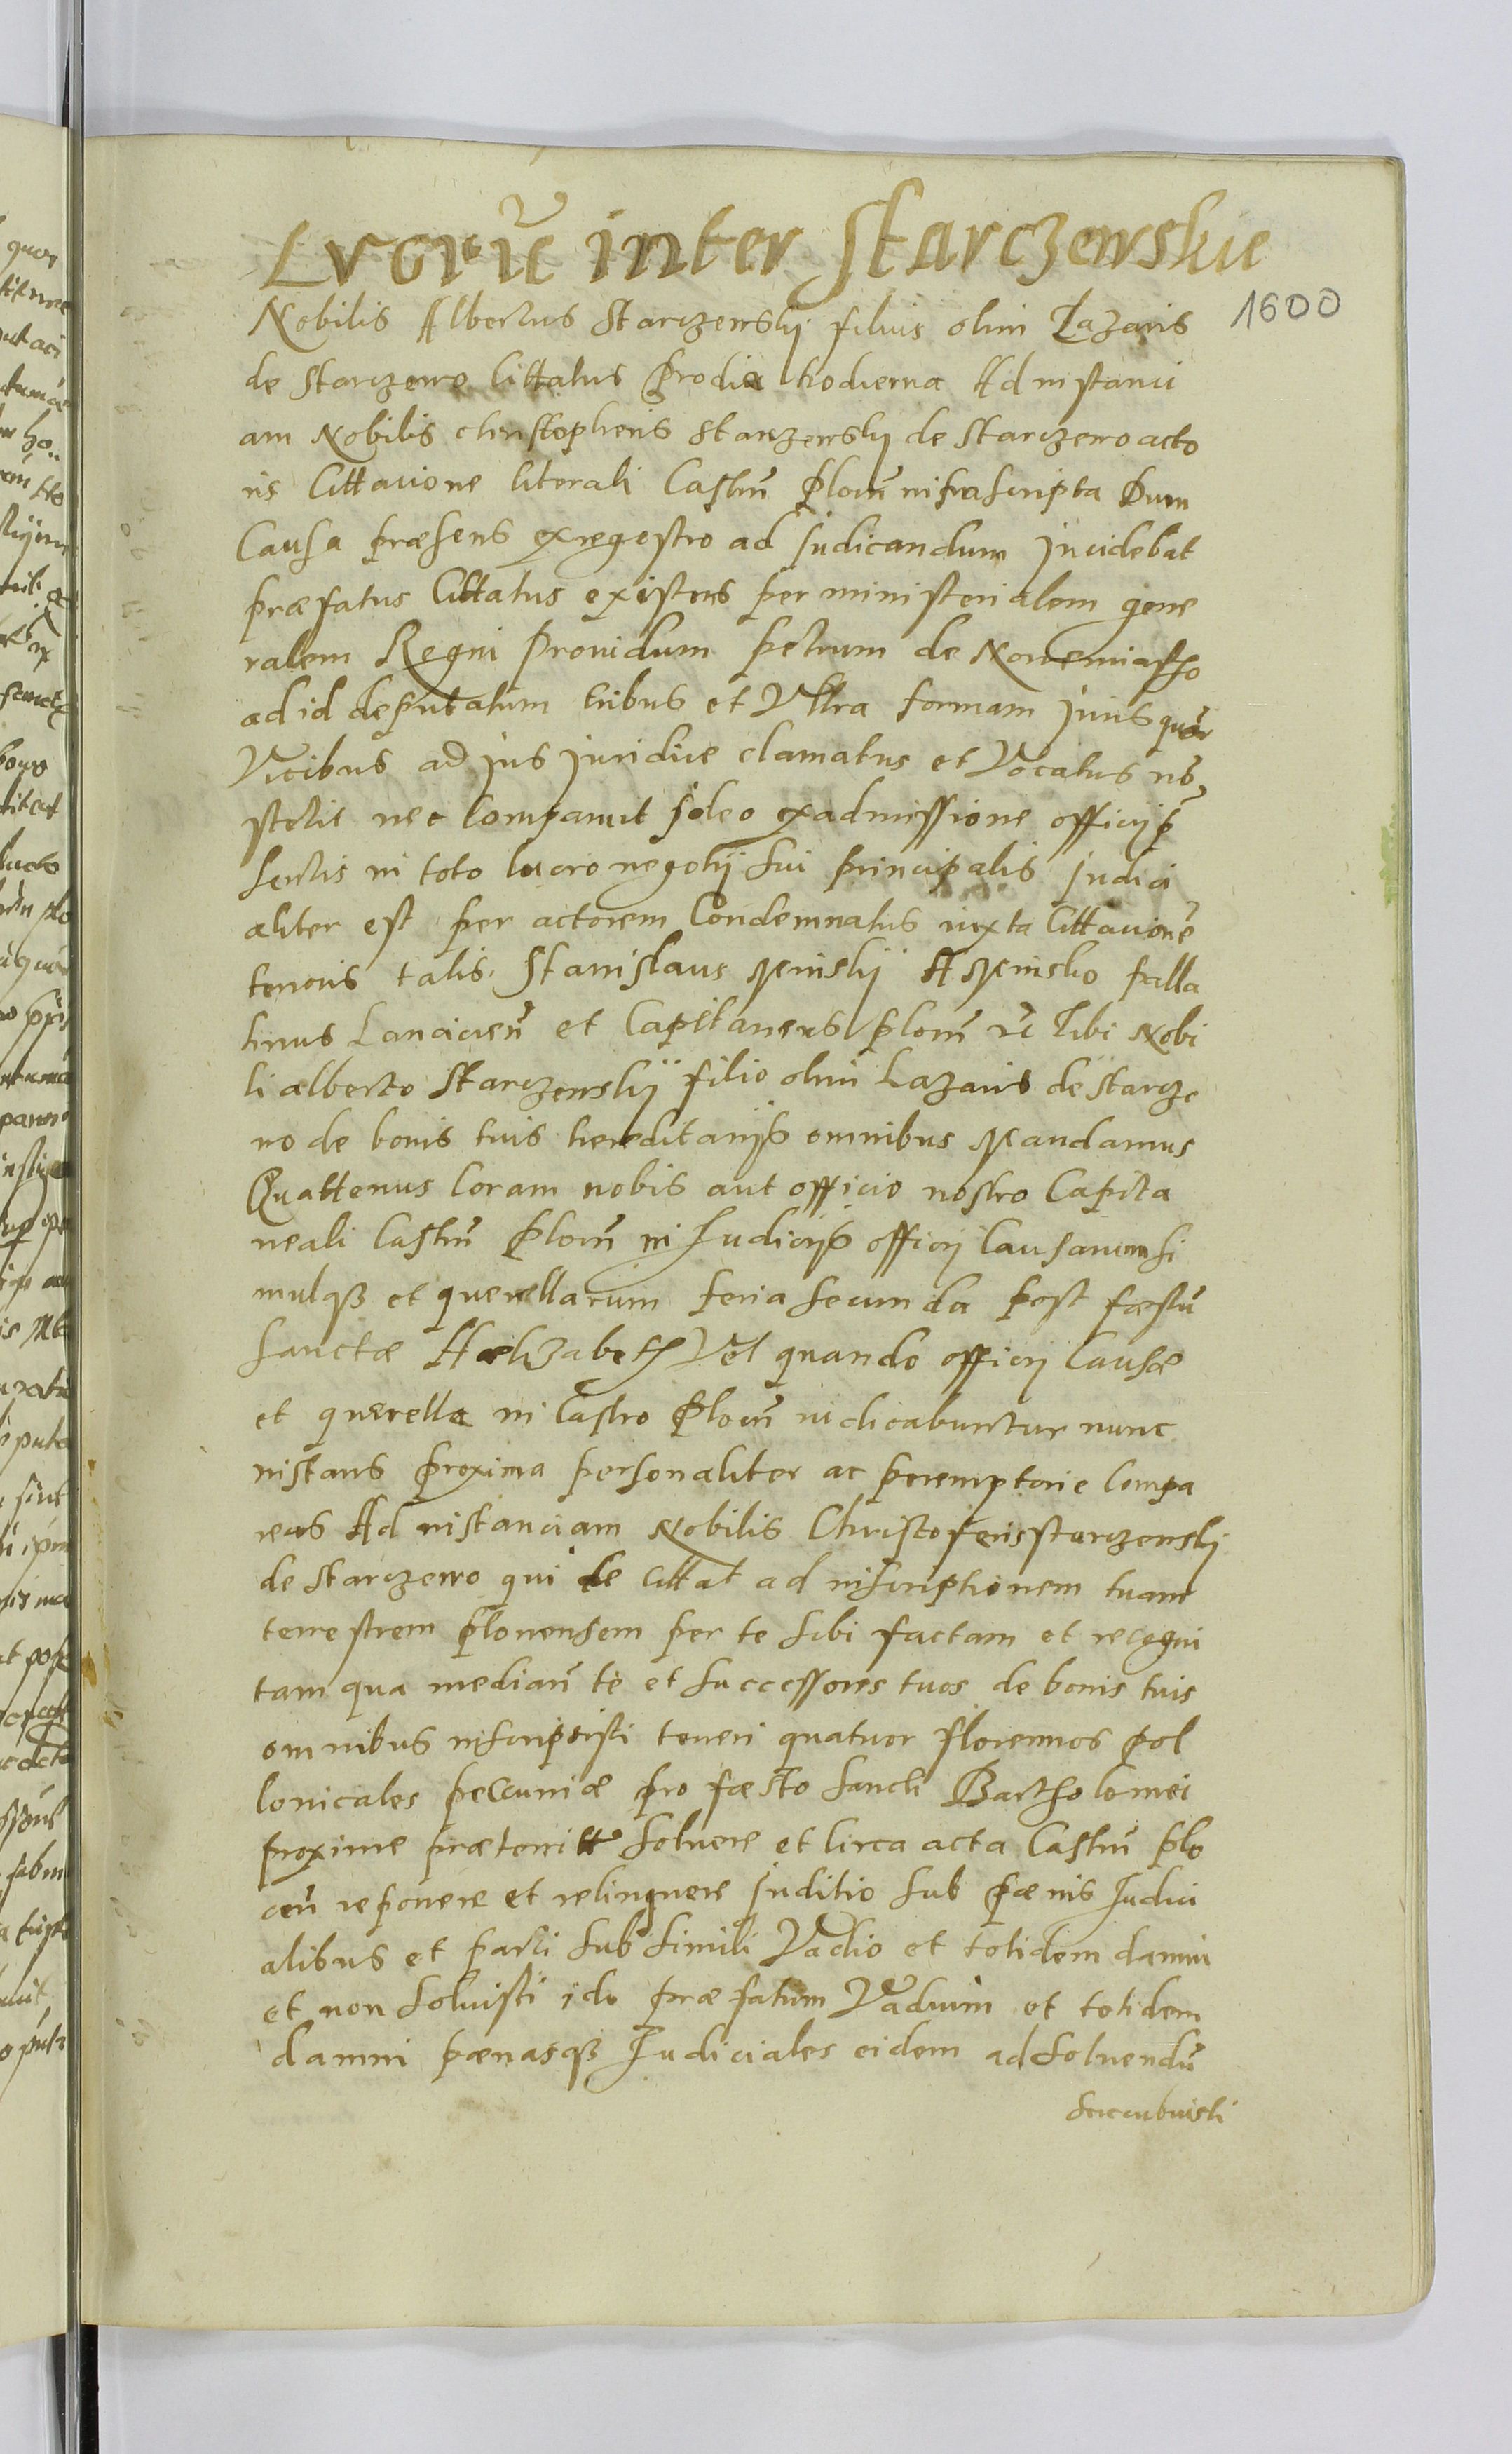 Lucrũ inter Starczewskie
1600
Nobilis Albertus Starczewskij filius olim Lazaris
de Starczewo Cittatus Prodie hodierna Ad instanci
am Nobilis Christopheris Starczewskij de Starczewo acto
ris Cittacione literali Castrñ Plocñ infrascripta Dum
Causa præsens ex regestro ad judicandum jncidebat
præfatus Cittatus existens per ministerialem gene
ralem Regni Prouidum petrum de Nowemiastho
ad id deputatum tribus et Vltra formam juris quar
Vicibus ad jus juridice clamatus et Vocatus nõ
stetit nec Comparuit jdeo ex admissione officij p
sentis in toto lucro negotij sui principalis judici
aliter est per actorem Condemnatus iuxta Cittacionẽ
tenoris talis. Stanislaus Minskij A Minsko palla
tinus Lanciciẽn et Capitaneus plocñ rc Tibi Nobi
li alberto Starczewskij filio olim Lazaris de Starcze
wo de bonis tuis hereditarijs omnibus Mandamus
Quattenus Coram nobis aut officio nostro Capita
neali Castrñ Plocñ in Judicijs officij Causarum si
mulqз et querellarum feria secunda post fæstũ
Sanctæ Hælizabeth Vel quando officij Causæ
et querellæ in Castro Plocñ iudicabuntur nunc
instans proxima personaliter ac peremptorie Compa
reas Ad instanciam Nobilis Christoferi starczewskij
de Starczewo qui te cittat ad inscriptionem tuam
terrestrem plonensem per te sibi factam et recogni
tam qua mediañ te et successores tuos de bonis tuis
omnibus inscripsisti teneri quatuor florennos pol
lonicales peccuniæ pro fæsto sancti Bartholomei
proxime præteritto soluere et Circa acta Castrñ plo
cẽn reponere et relinquere juditio sub pænis Judici
alibus et parti sub simili Vadio et totidem damni
et non soluisti ido præfatum Vadium et totidem
damni pænasqз Judiciales eidem ad soluendũ
succubuisti